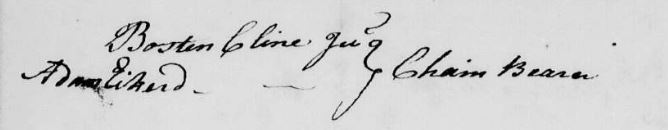 Bosten Cline Jur
Adam Eikerd - - Chain Bearer